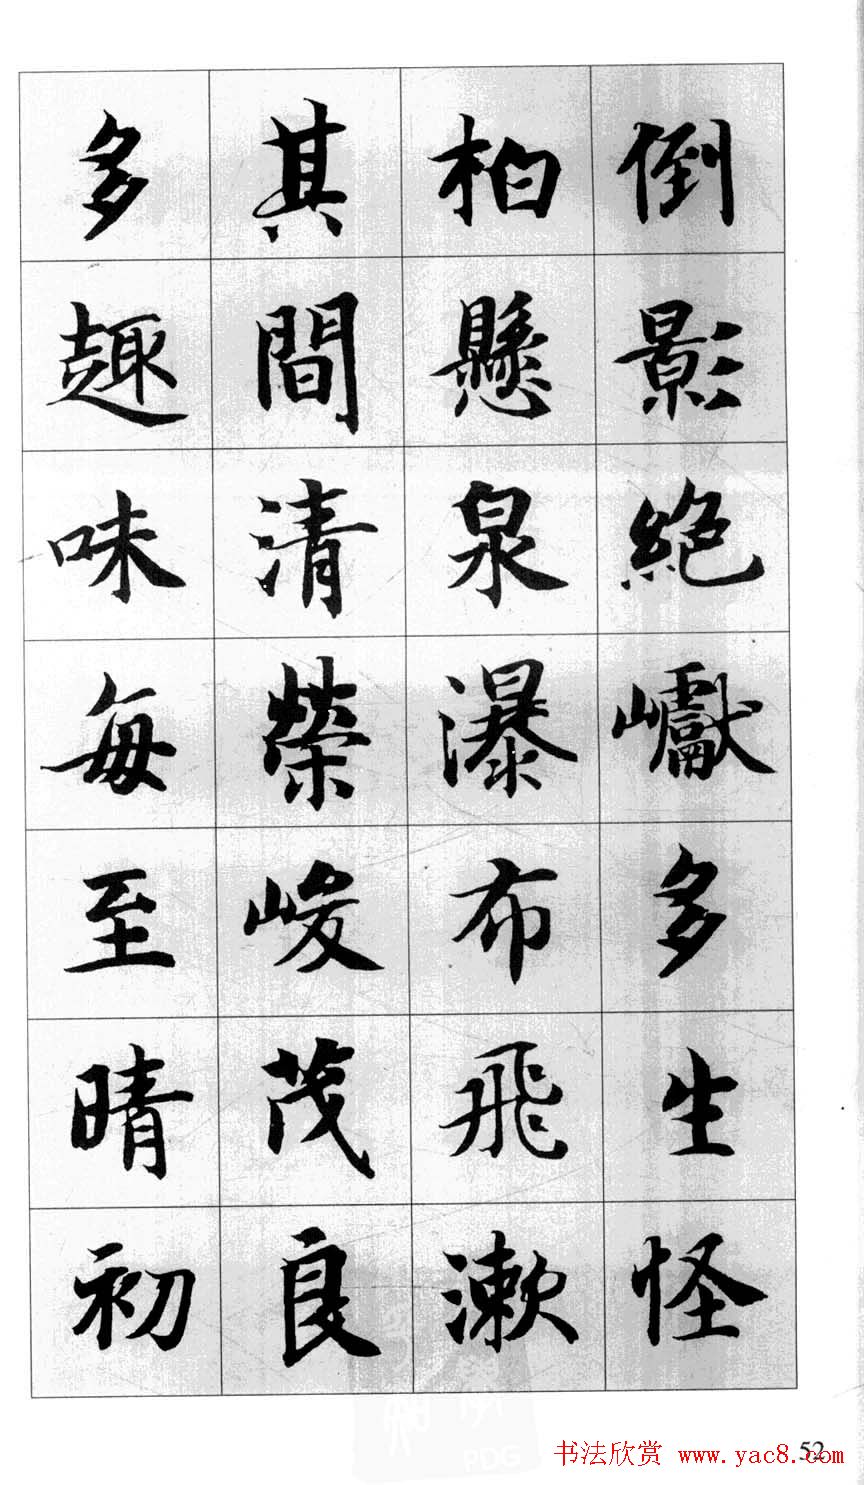 倒影絕巘多生怪
柏懸泉瀑布飛漱
其間清榮峻茂良
多趣味每至晴初
52
书法欣赏 www.yac8.com
PDG